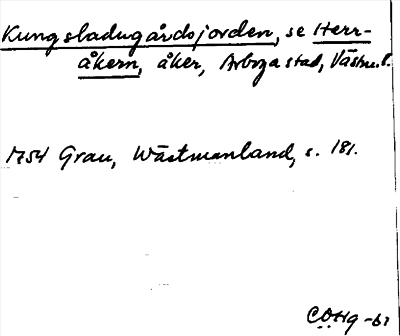 Kungsladugårdsjorden, se Herr-
åkern, åker, Arboga stad, Västm.l.
1754 Grau, Wästmanland, s. 181.
CÖHg -61